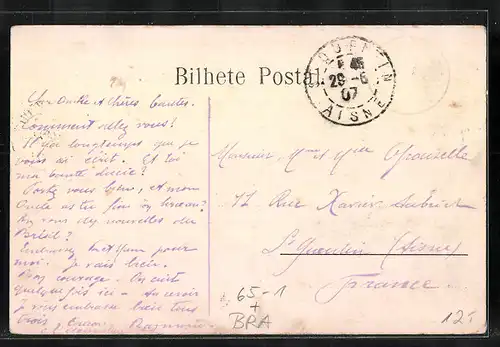 Bilhete Postal
QUENTIN
45
29-6
07
AISNE
Mon Oncle et Chères tantes.
Comment allez vous?
Il y a longtemps que je
vous ai écrit. Et toi
ma tante
Portez vous bien, et mon
Oncle
vous des nouvelles du
Brésil?
Embrassez pour
moi. Je vais bien.
Bon courage. On écrit
quelque fois ici - Au revoir
je vous embrasse bien tous
trois
Monsieur,
12 Rue Xavier Aubriet
St Quentin (Aisne)
France.
65-1
+
BRA
12.